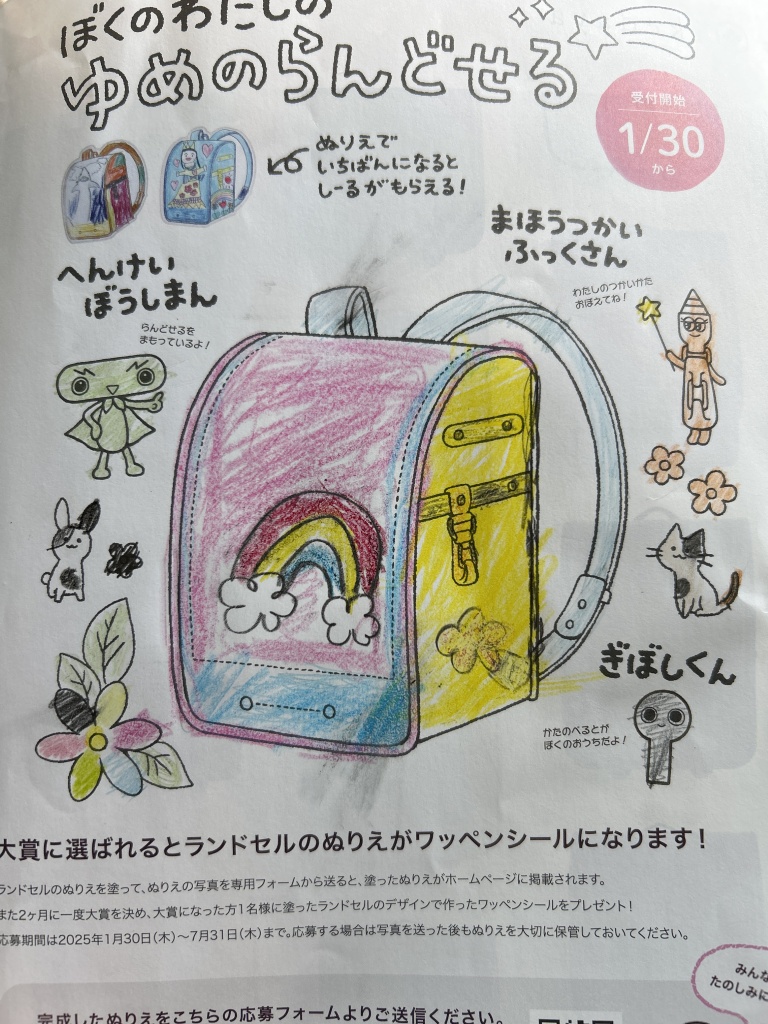 ぼくのわたしの
ゆめのらんどせる
受付開始
1/30
から
ぬりえで
いちばんになると
しーるがもらえる！
まほうつかい
ふっくさん
わたしのつかいかた
おぼえてね！
へんけい
ぼうしまん
らんどせるを
まもっているよ！
ぎぼしくん
かたのべるとが
ぼくのおうちだよ！
大賞に選ばれるとランドセルのぬりえがワッペンシールになります！
ランドセルのぬりえを塗って、ぬりえの写真を専用フォームから送ると、塗ったぬりえがホームページに掲載されます。
また2ヶ月に一度大賞を決め、大賞になった方1名様に塗ったランドセルのデザインで作ったワッペンシールをプレゼント！
応募期間は2025年1月30日(木)～7月31日(木)まで。応募する場合は写真を送った後もぬりえを大切に保管しておいてください。
みんな
たのしみに
完成したぬりえをこちらの応募フォームよりご送信ください。